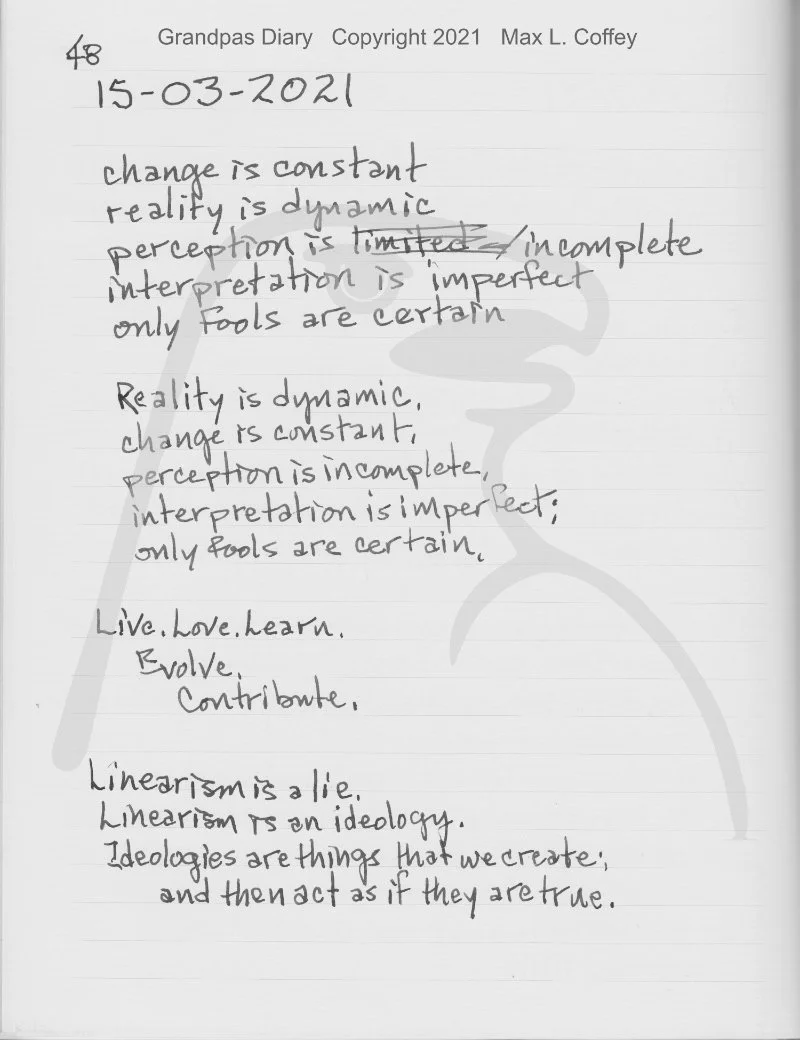 Grandpas Diary Copyright 2021 Max L. Coffey
48
15-03-2021
change is constant
reality is dynamic
perception is limited / incomplete
interpretation is imperfect
only fools are certain
Reality is dynamic,
change is constant,
perception is incomplete,
interpretation is imperfect;
only fools are certain.
Live. Love. Learn.
Evolve.
Contribute.
Linearism is a lie.
Linearism is an ideology.
Ideologies are things that we create;
and then act as if they are true.